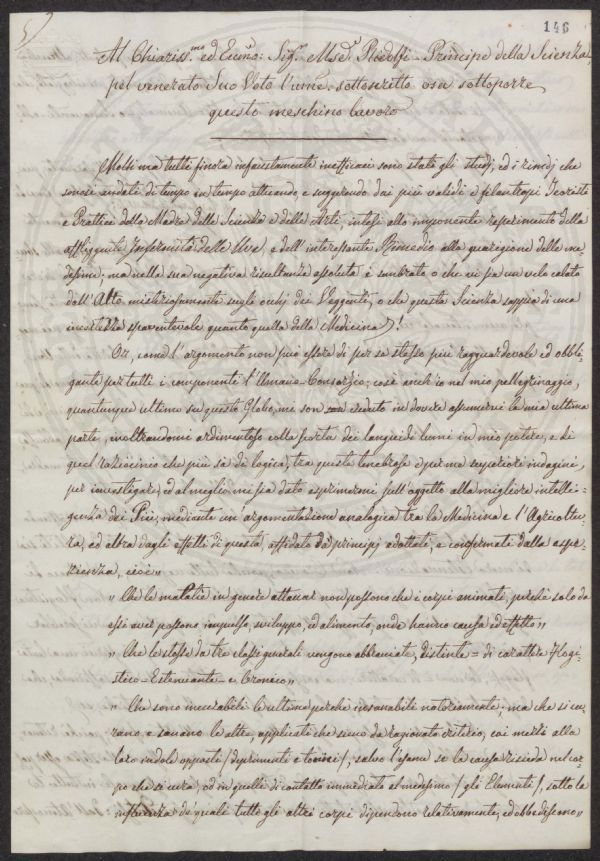 5) 146
Al Chiariss.mo ed Eccmo: Sig.r March.e Ridolfi - Principe della Scienza
pel venerato Suo Voto l'ume. sottoscritto osa sottoporre
questo meschino lavoro
Molti ma tutti finora infaustamente inefficaci sono stati gli studj, ed i rimedj che
sonosi andati di tempo in tempo attuando, e suggerendo dai più validi e filantropi Teoristi
e Prattici della Madre delle Scienze e delle Arti, intesi allo imponente reperimento della
affliggente Infermità delle Uve, e dell'interessante Rimedio alla guarigione delle me-
desime; ma nella sua negativa risultanza assoluta è sembrato o che vi sia un velo calato
dall'Alto misteriosamente sugli occhj dei Veggenti, o che questa Scienza sappia di una
incertezza spaventevole quanto quella della Medicina)!
Or, come l'argomento non può essere di per se stesso più ragguardevole ed obbli-
gante per tutti i componenti l'Umano-Consorzio; così anch'io nel mio pellegrinaggio,
quantunque ultimo su questo Globo, me son creduto in dovere assumervi la mia ultima
parte, inoltrandomi ardimentoso colla scorta dei languidi lumi in mio potere, e di
quel raziocinio che più sà di logica, tra queste tenebrose e per me superiori indagini,
per investigare, ed al meglio mi sia dato esprimermi sull'oggetto alla migliore intelli-
genza dei Più, mediante un'argomentazione analogica tra la Medicina e l'Agricoltu-
ra, ed altra dagli effetti di questa, affidato da principj adottati, e confermati dalla espe-
rienza, cioè"
" Che le malattie in genere attaccar non possono che i corpi animati, perchè solo da
essi aver possono impulso, sviluppo, ed alimento, onde hanno causa ed effetto "
" Che le stesse da tre classi generali vengono abbracciate, distinte = di carattere Flogi-
stico - Estenuante - e Cronico "
" Che sono incurabili le ultime perchè insanabili notoriamente; ma che si cu-
rano, e sanano le altre, applicati che sieno da ragionato criterio, coi mezzi alla
loro indole opposti / deprimenti e tonici /, salvo l'esame se la causa risieda nel cor-
po che si cura, od in quelli di contatto immediato al medesimo / gli Elementi /, sotto la
influenza de' quali tutti gli altri corpi dipendono relativamente, ed obbediscono "